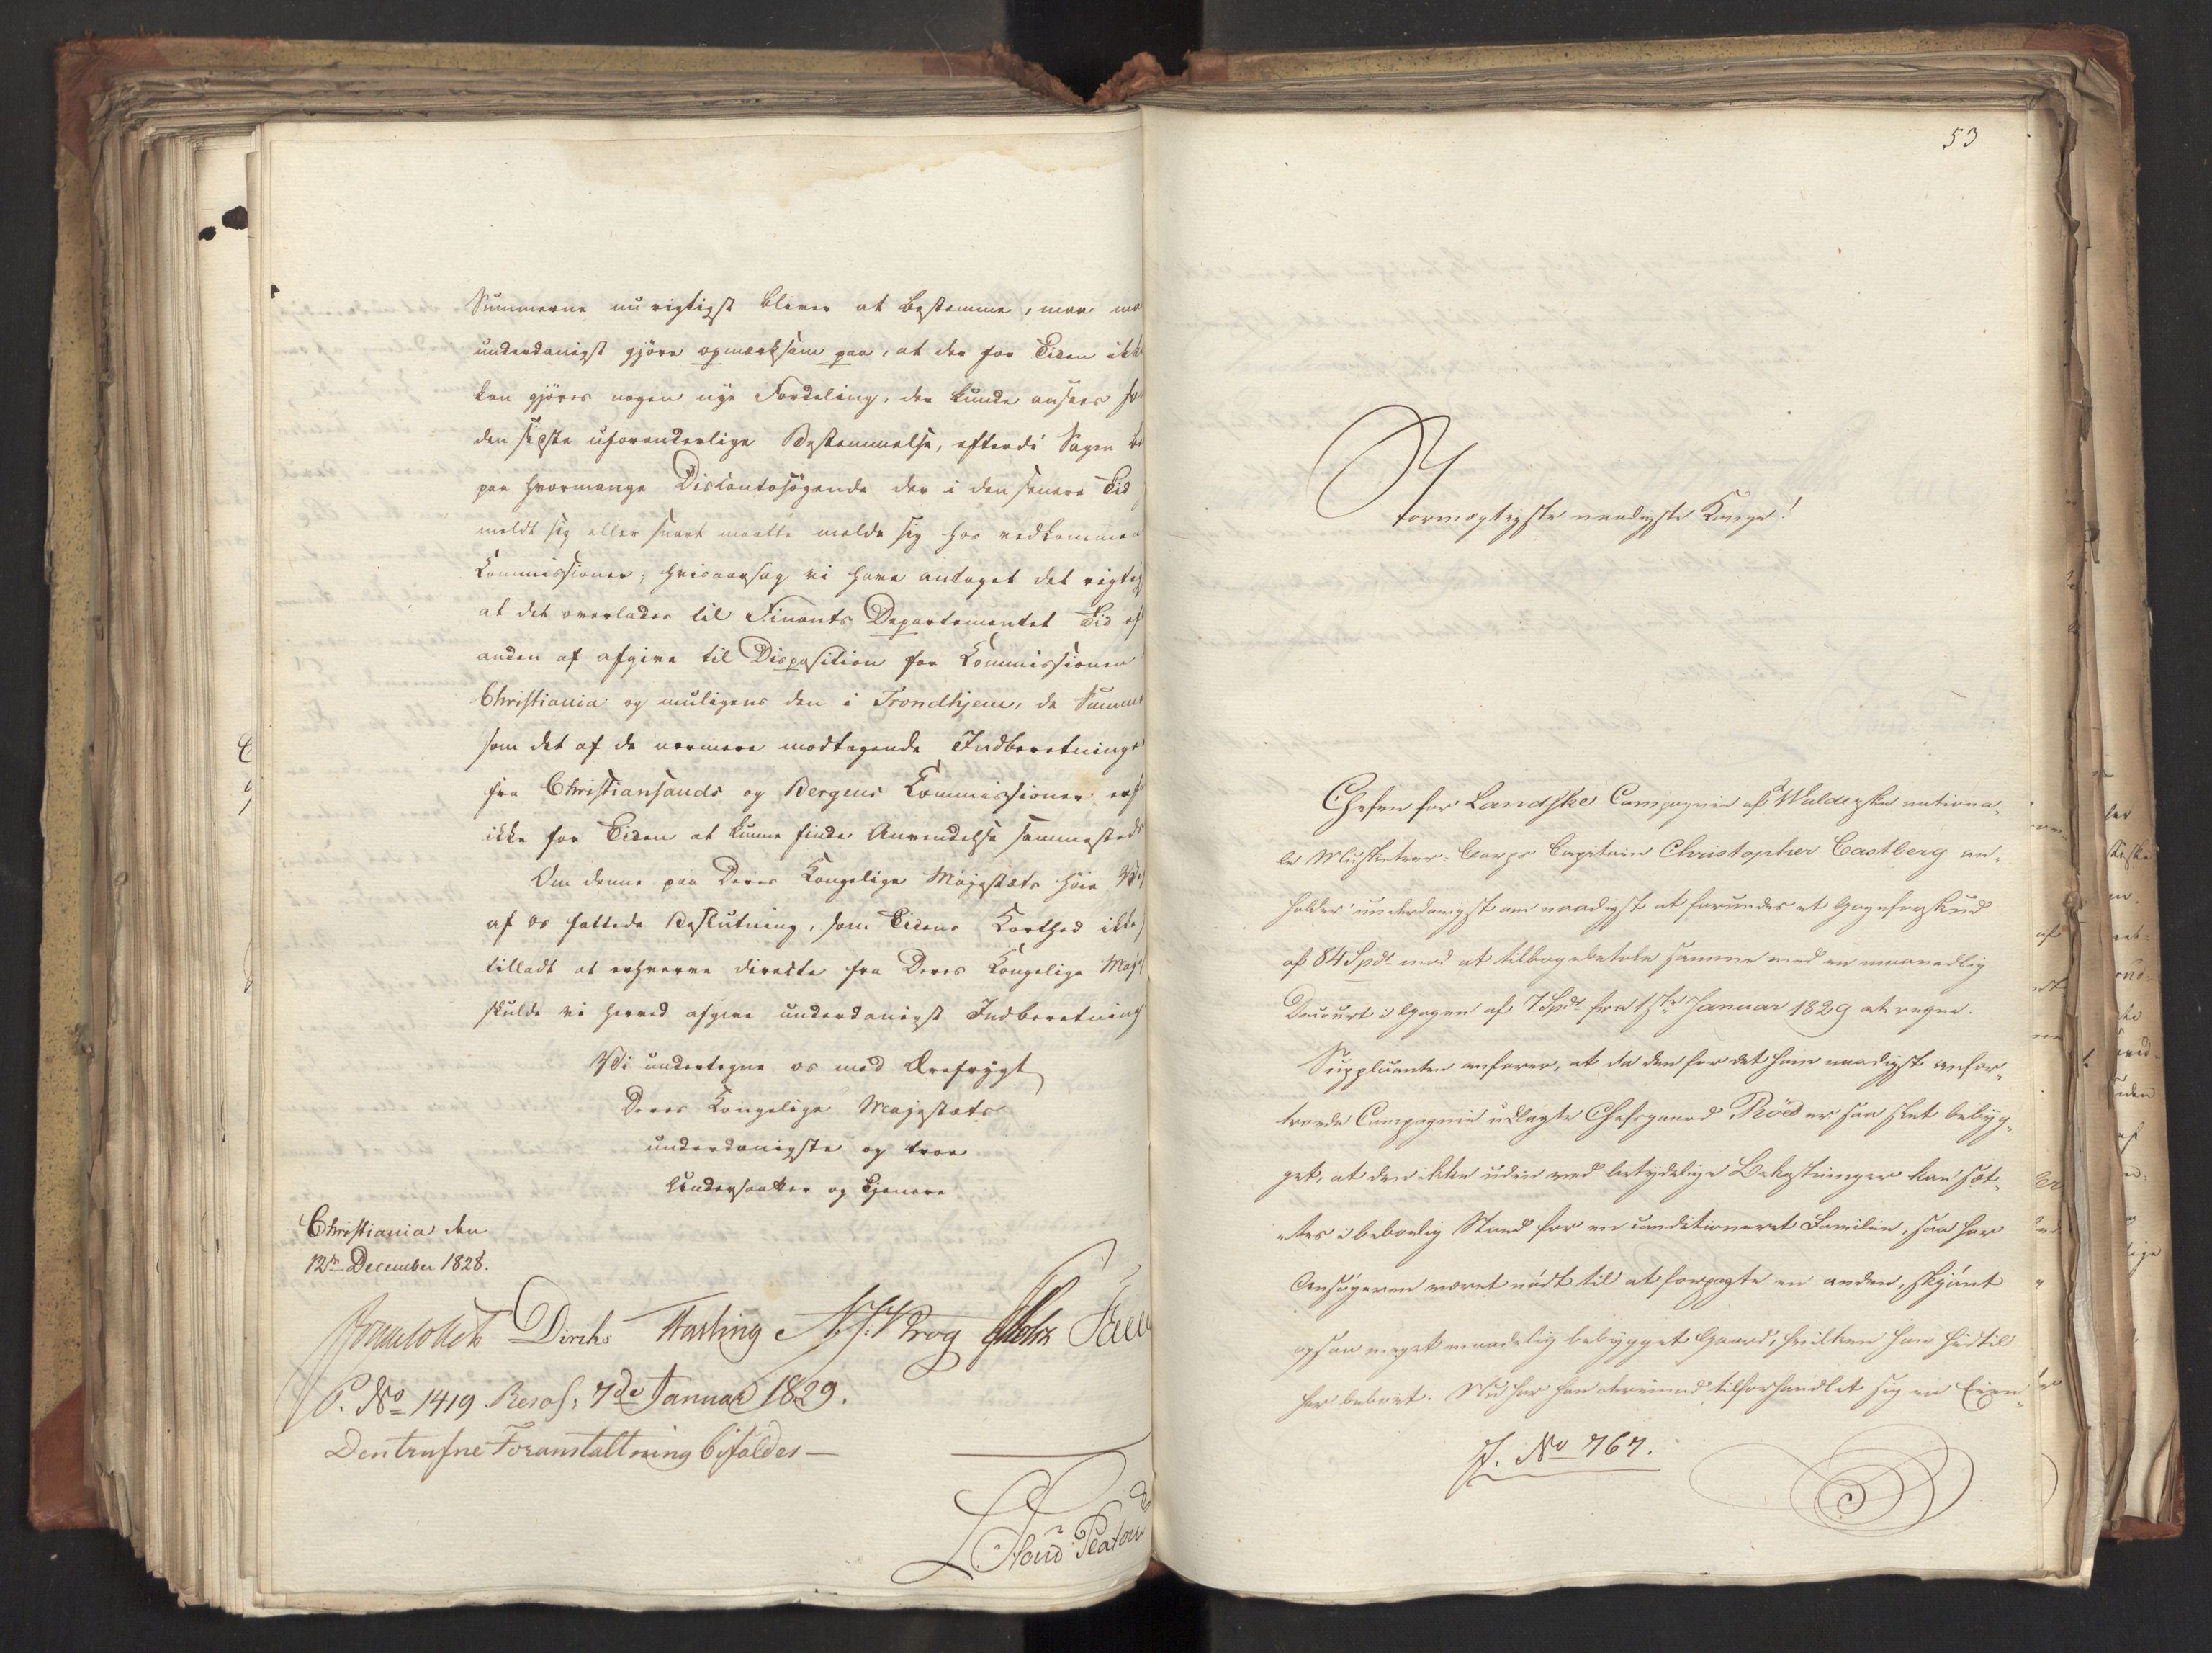 Summerne nu rigtigst bliver at bestemme, maa
underdanigst gjøre opmærksom paa, at der for Tiden ikke
kan gjøres nogen nye Fordeling, der kunde ansees
den sidste uforanderlige Bestemmelse, efterdi Sagen
paa hvormange Diskontosøgende der i den senere Tid
meldt sig eller snart maatte melde sig hos vedkommen
Kommissioner, hvisaarsag vi have antaget det rigtig
at det overlades til Finants Departementet Tid ef
anden at afgive til Disposition for Kommissionen
Christiania og muligens den i Trondhjem, de Summe
som det af de nærmere modtagende Indberetninge
fra Christiansands og Bergens Kommissioner
ikke for Tiden at kunne finde Anvendelse sammesteds
Om denne paa Deres Kongelige Majestæts høie
af os fattede Beslutning, som Tidens Korthed ikke
tilladt at erhverve directe fra Deres Kongelige Maje
skulde vi herved afgive underdanigst Indberetning
Vi undertegne os med Ærefrygt
Deres Kongelige Majestæts
underdanigste og troe
Undersaatter og Tjenere
Christiania den
12te December 1828.
Diriks Fasting Krog Holst
P. No 1419 Resol: 7de Januar 1829.
Den trufne Foranstaltning bifaldes —
53
Stormægtigste naadigste Konge!
Chefen for Landske Compagnie af Walderske nationa-
le Musketeer-Corps Capitain Christopher Castberg an-
holder underdanigst om naadigst at forundes et Gageforskud
af 84 Spdr mod at tilbagebetale samme med en maanedlig
Decourt i Gagen af 7 Spdr fra 1ste Januar 1829 at regne.
Supplicanten anfører, at da den for det ham naadigst anfor-
troede Compagnie udlagte Chefsgaard Röed er saa slet bebyg-
get, at den ikke uden med betydelige Bekostninger kan sæt-
tes i beboelig Stand for en conditioneret Familie, saa har
Ansøgeren været nødt til at forpagte en anden, skjønt
ogsaa meget maadelig bebygget Gaard, hvilken han hidtil
har beboet. Nu har han derimod tilforhandlet sig en Eien-
J. No 767.